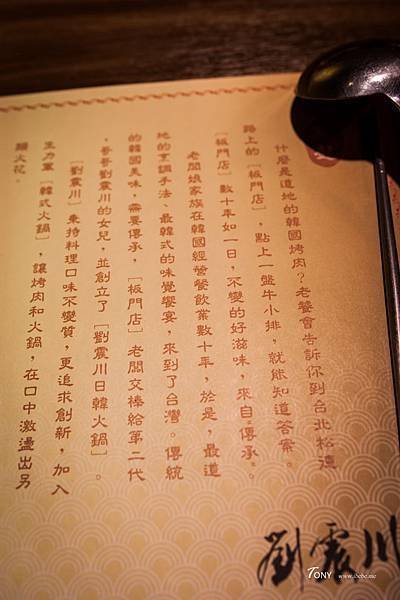 什麼是道地的韓國烤肉?老饕會告訴你到台北松德
路上的[板門店],點上一盤牛小排,就能知道答案。
[板門店]數十年如一日,不變的好滋味,來自傳承。
老闆娘家族在韓國經營餐飲業數十年,於是,最道
地的烹調手法、最韓式的味覺饗宴,來到了台灣。傳統
的韓國美味,需要傳承,[板門店]老闆交棒給第二代
,哥哥劉震川的女兒,並創立了[劉震川日韓火鍋]。
[劉震川]秉持料理口味不變質,更追求創新,加入
生力軍[韓式火鍋],讓烤肉和火鍋,在口中激盪出另
類火花。
劉震川
TONY www.ibebe.me